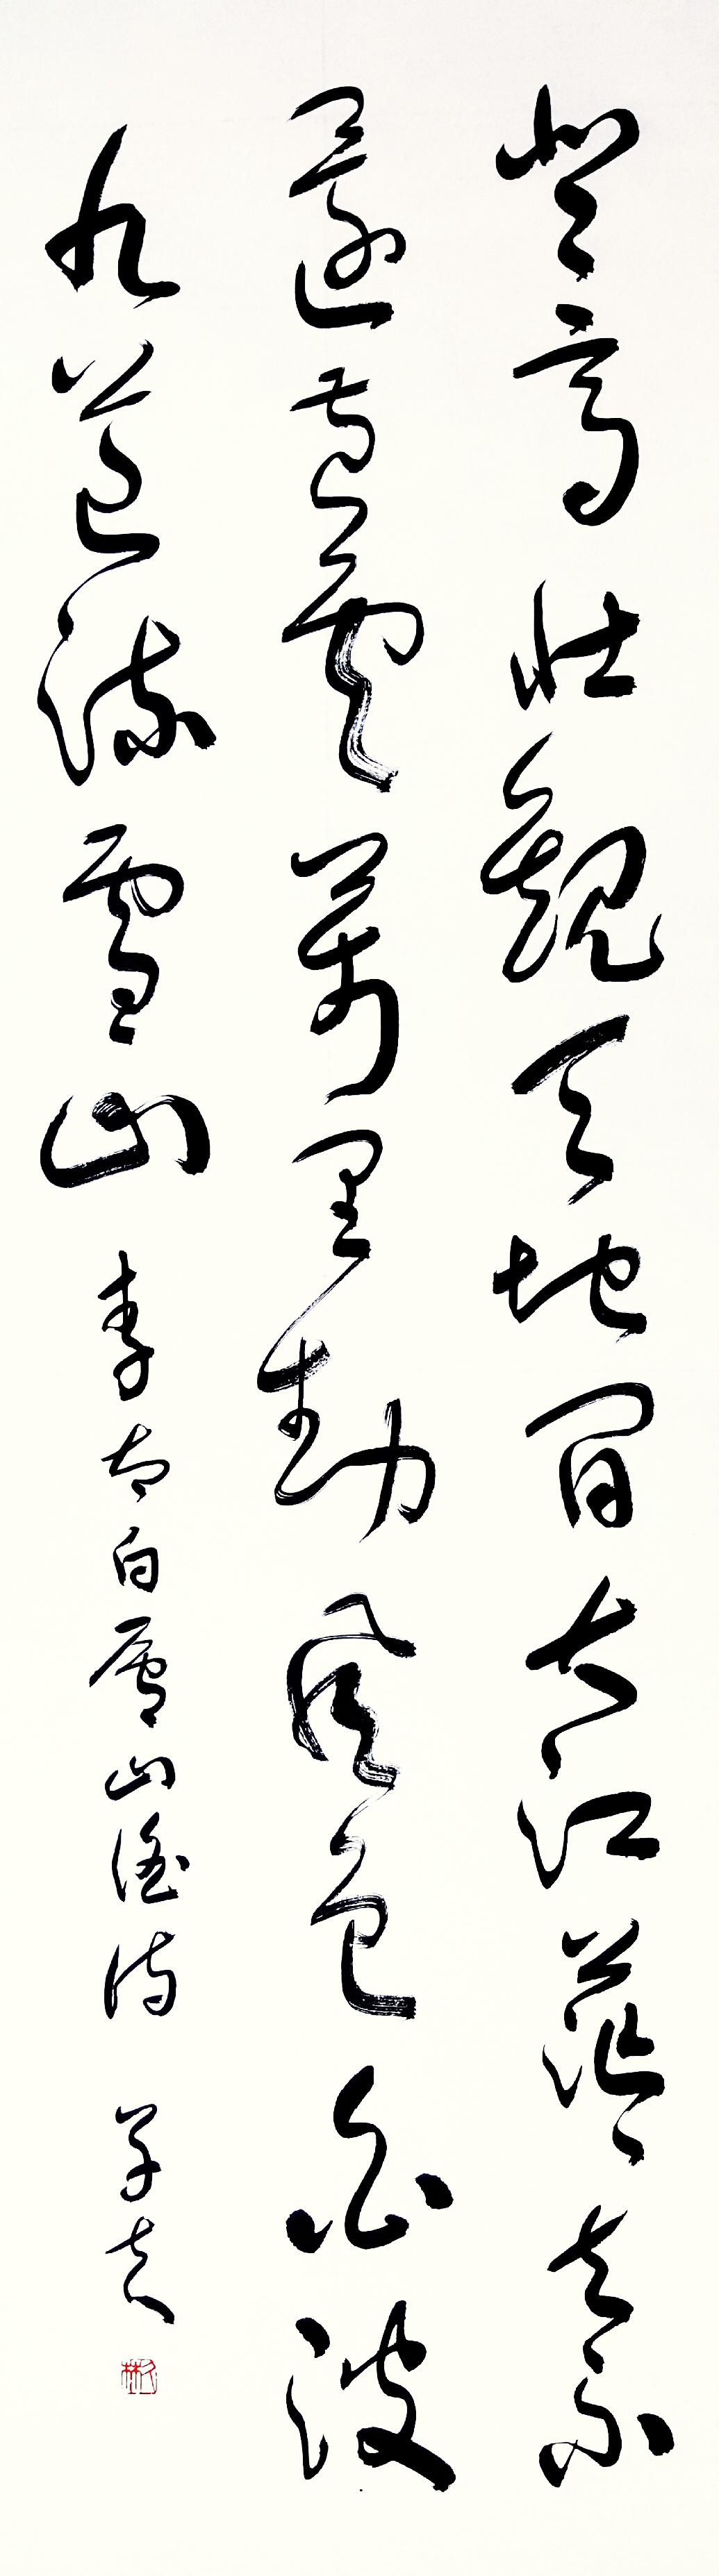 登高壯觀天地間大江茫々去不
還黃雲萬里動風色白波
九道流雪山 李太白廬山謠詩